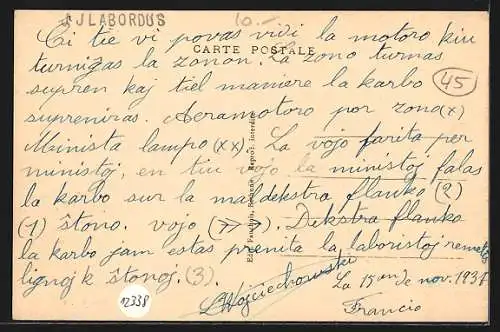 J LABORDUS
10.-
Ĉi tie vi povas vidi la motoro kiu
CARTE POSTALE
turnigas la zonon. La zono turnas
supren kaj tiel maniere la karbo
45
supreniras. Aeramotoro por zono (x)
Minista lampo (xx). La vojo farita per
ministoj, en tiu vojo la ministoj falas
la karbo sur la maldekstra flanko (2)
(1) ŝtono. vojo (→→). Dekstra flanko
la karbo jam estas prenita la laboristoj remetas
lignoj k ŝtonoj. (3).
Wojciechowski
La 15an de nov. 1937
Francio
12338